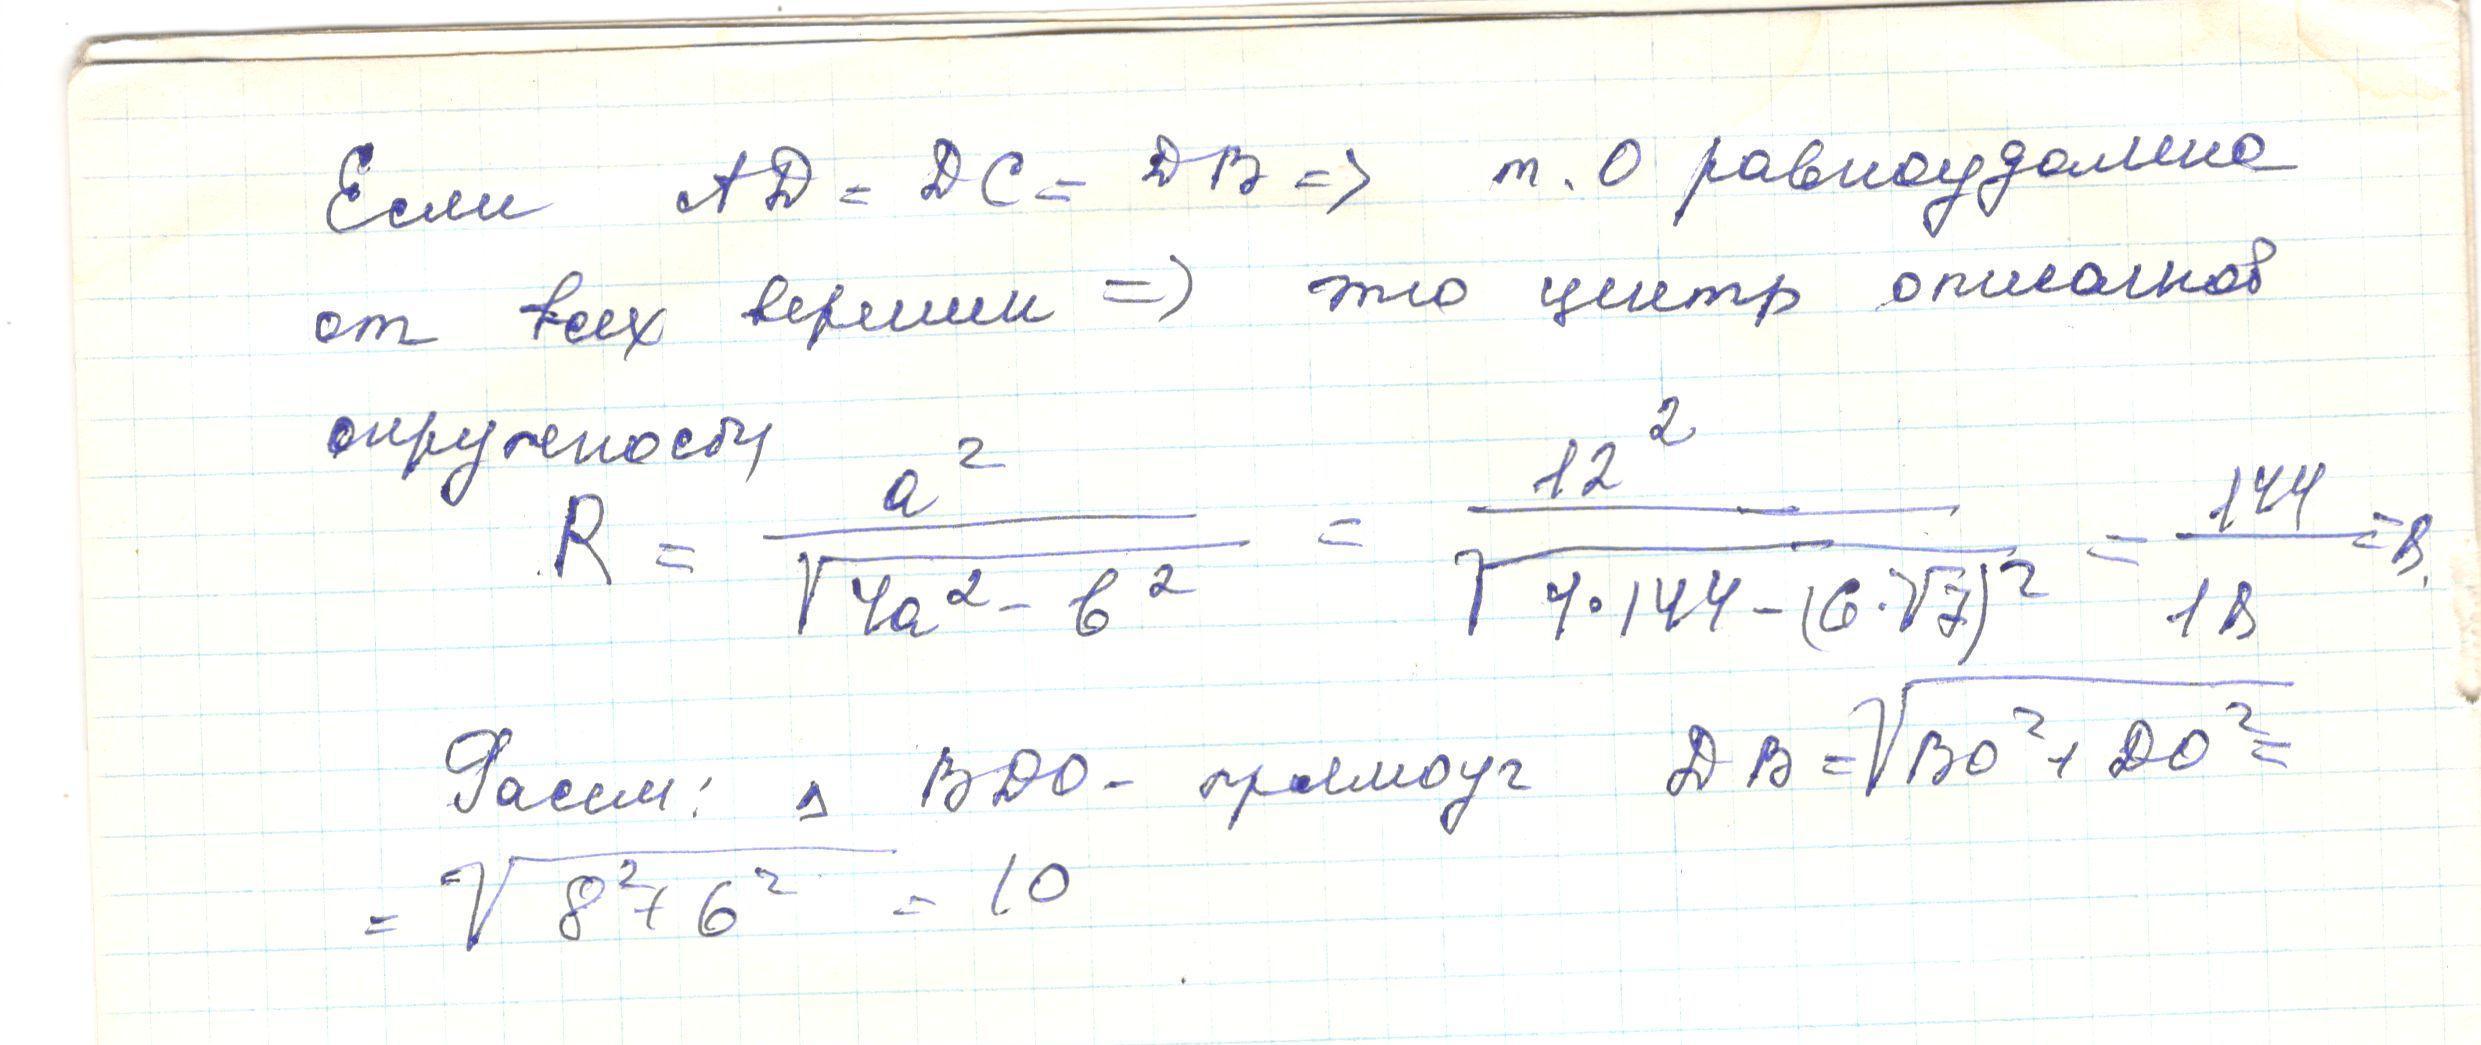 Если AD = DC = DB => т. О равноудалена
от всех вершин => это центр описанной
окружности
R = a² / √(4a² - b²) = 12² / √(4·144 - (6·√7)²) = 144 / 18 = 8.
Рассм: △ BDO - прямоуг DB = √(BO² + DO²) =
= √(8² + 6²) = 10